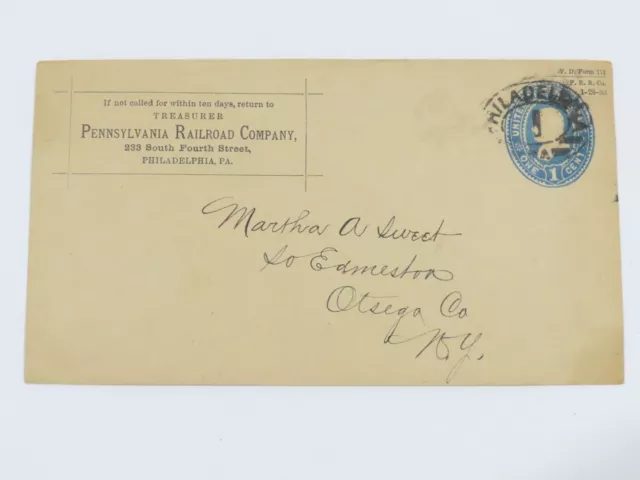 If not called for within ten days, return to
TREASURER
PENNSYLVANIA RAILROAD COMPANY,
233 South Fourth Street,
PHILADELPHIA, PA.
D. Form 111
P. R. R. Co.
PHILADELPHIA
UNITED
ONE 1 CENT
Martha A Sweet
So Edmeston
Otsego Co
N.Y.